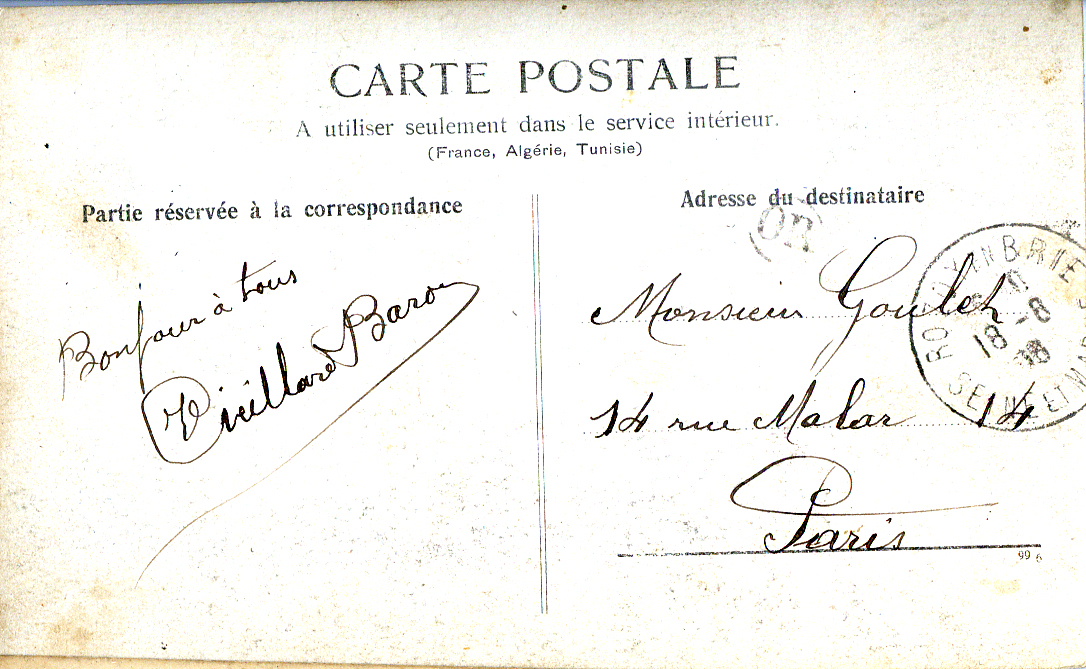 CARTE POSTALE
A utiliser seulement dans le service intérieur.
(France, Algérie, Tunisie)
Partie réservée à la correspondance
Bonjour à tous
Vieillard Baron
Adresse du destinataire
OR
Monsieur Goulet
14 rue Malar 14
Paris
99
ROZOY EN BRIE
18 - 8
08
SEINE ET MAR